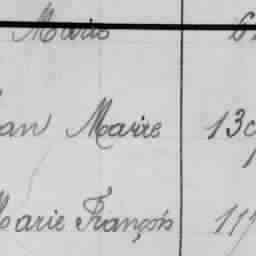 Marie 6
an Marie 139
Marie François 11